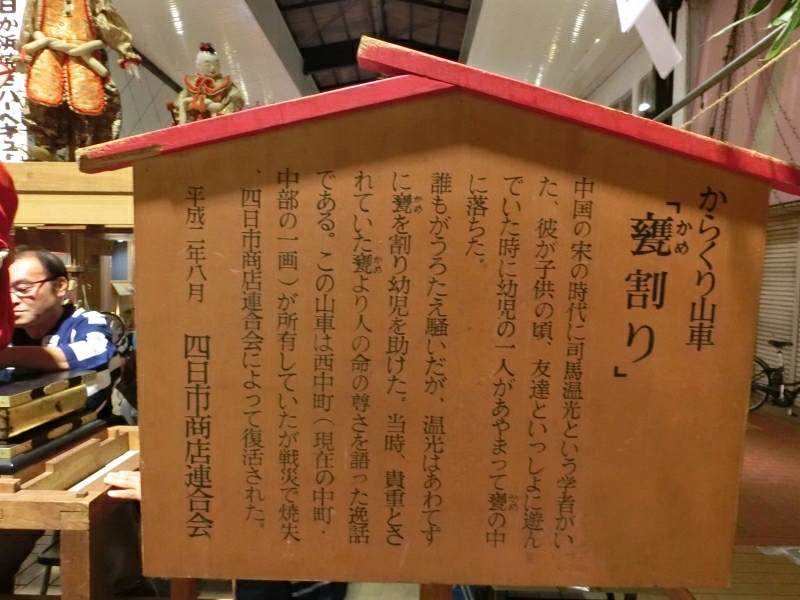 からくり山車
「甕割り」
かめ
中国の宋の時代に司馬温光という学者がい
た、彼が子供の頃、友達といっしょに遊ん
でいた時に幼児の一人があやまって甕の中
かめ
に落ちた。
誰もがうろたえ騒いだが、温光はあわてず
に甕を割り幼児を助けた。当時、貴重とさ
かめ
れていた甕より人の命の尊さを語った逸話
かめ
である。この山車は西中町（現在の中町・
中部の一画）が所有していたが戦災で焼失
、四日市商店連合会によって復活された。
平成二年八月 四日市商店連合会